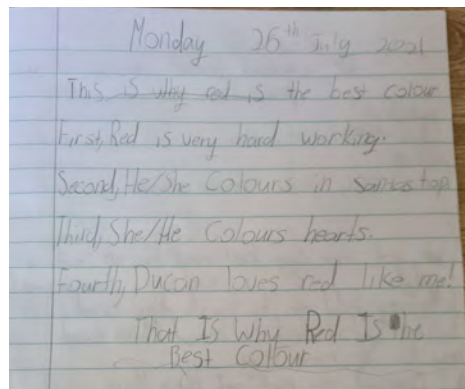 Monday 26th July 2021
This is why red is the best colour
First, Red is very hard working.
Second, He/She Colours in santas top
Third, She/He Colours hearts.
Fourth, Ducan loves red like me!
That Is Why Red Is the
Best Colour